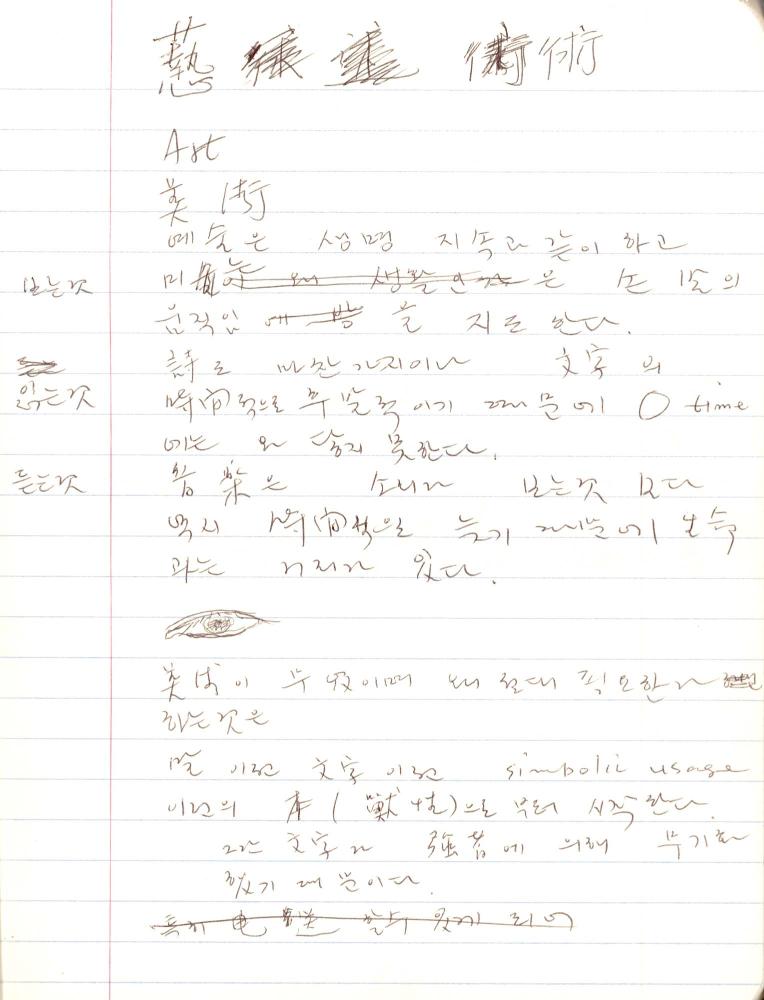 藝 術
Art
美術
예술은 생명 지속과 같이 하고
보는것 미술은 손 발의
움직임 을 지도 한다.
詩도 마찬가지이나 文字의
읽는것 時间적으로 후발적이기 때문에 0 time
에는 와 닿지 못한다.
듣는것 音楽은 소리가 보는것 보다
역시 時间적으로 늦기 때문에
과는 거리가 있다.
美術이 무엇이며 왜 절대 필요한가
하는것은
말 이전 文字 이전 simbolic usage
이전의 本(獸性)으로 부터 시작한다.
그간 文字가 強者에 의해 무기화
됬기 때문이다.